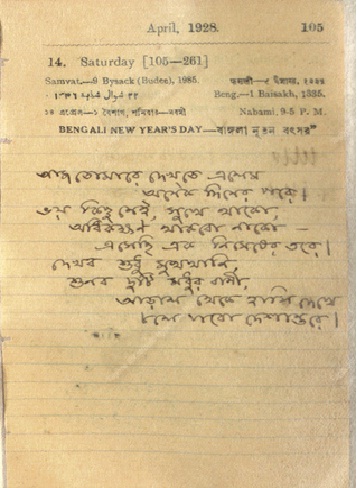 April, 1928. 105
14. Saturday [105—261]
Samvat.—9 Bysack (Budee), 1985.
Beng.—1 Baisakh, 1335.
Nabami, 9-5 P. M.
BENGALI NEW YEAR'S DAY—বাঙ্গলা নূতন বৎসর
আজ তোমারে দেখতে এলেম
অনেক দিনের পরে।
ভয় কিছু নেই, সুখে থাকো,
অধিকক্ষণ থাকবো নাকো —
এসেছি এক নিমেষের তরে।
দেখব শুধু মুখখানি,
শুনব দুটি মধুর বাণী,
আড়াল থেকে হাসি দেখে
চলে যাবো দেশান্তরে।